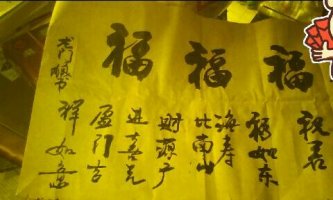 福福福
祝君
福如东
海寿
比南山
财源广
进喜气
盈门吉
祥如意
龙门